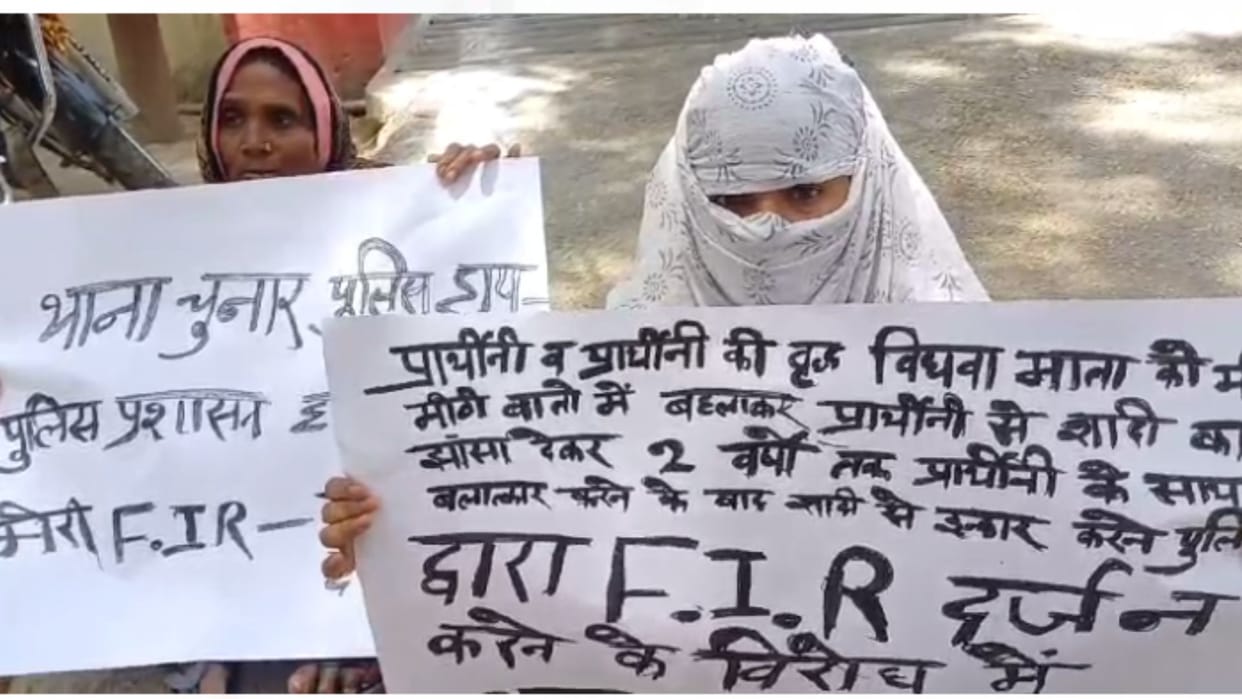 थाना चुनार पुलिस हाय-
पुलिस प्रशासन
मेरी F.I.R-
प्रार्थीनी व प्रार्थीनी की वृद्ध विधवा माता को
मीठी बातो में बहलाकर प्रार्थीनी से शादी का
झांसा देकर 2 वर्षो तक प्रार्थीनी के साथ
बलात्कार करने के बाद शादी से इन्कार करने पुलि
द्वारा F.I.R दर्ज न
करने के विरोध में